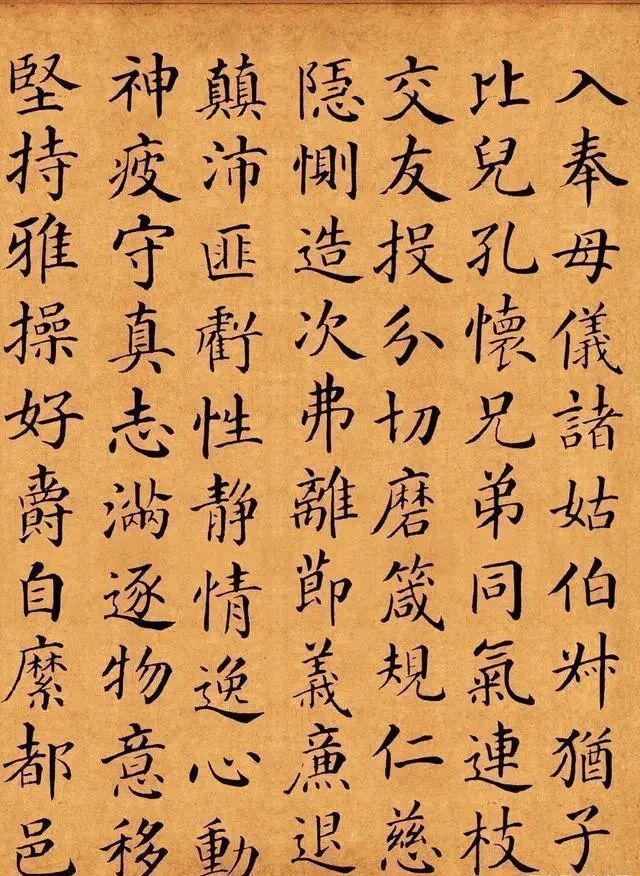 入奉母儀諸姑伯叔猶子
比兒孔懷兄弟同氣連枝
交友投分切磨箴規仁慈
隱惻造次弗離節義廉退
顛沛匪虧性静情逸心動
神疲守真志滿逐物意移
堅持雅操好爵自縻都邑